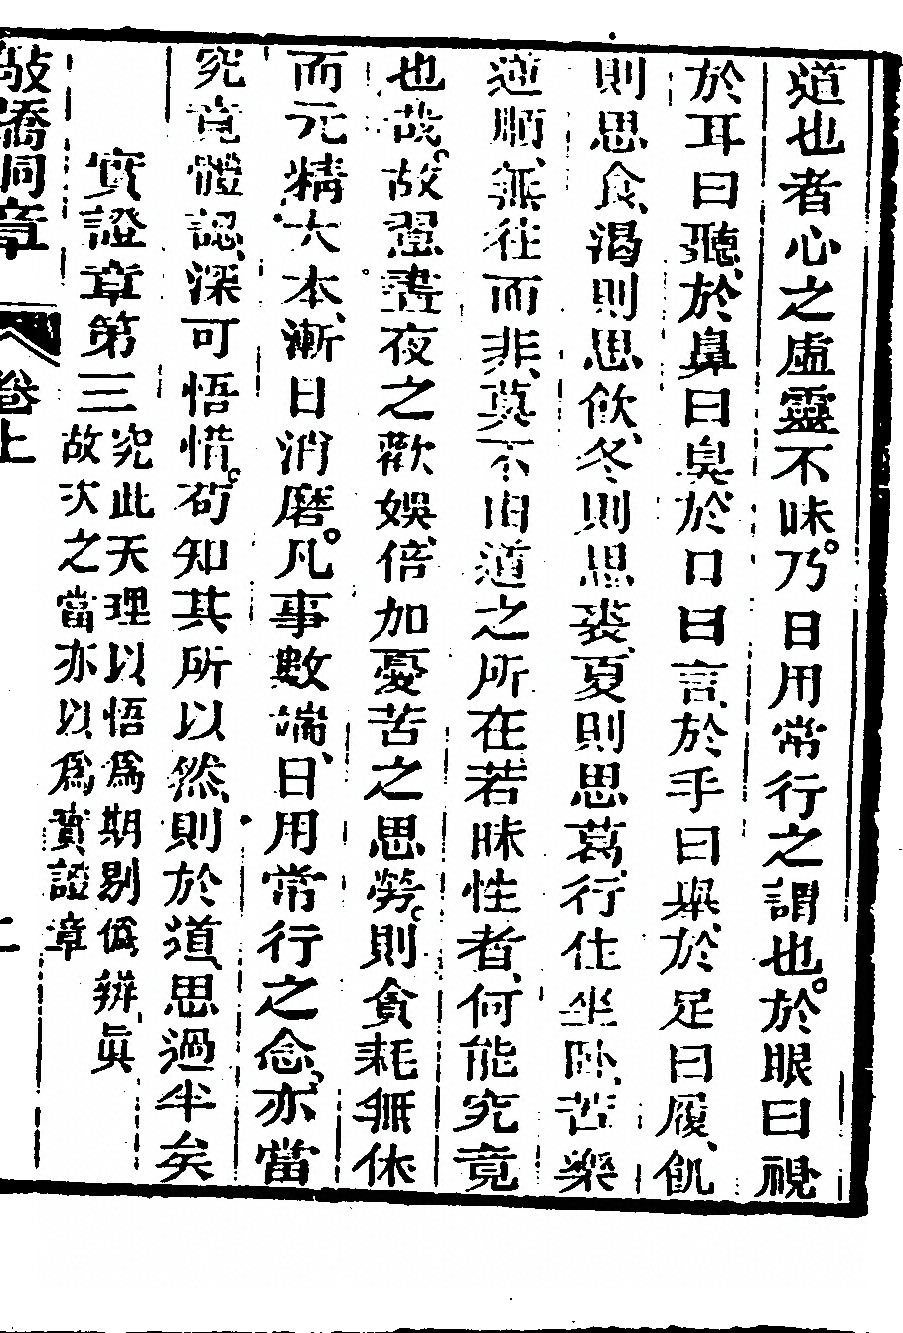 道也者心之虛靈不昧乃日用常行之謂也於眼曰視
於耳曰聽於鼻曰臭於口曰言於手曰舉於足曰履飢
則思食渴則思飲冬則思裘夏則思葛行住坐卧苦樂
逆順無往而非莫不由道之所在若昧性者何能究竟
也哉故瓮晝夜之歡娛倍加憂苦之思勞則貪耗無休
而元精大本漸日消磨凡事數端日用常行之念亦當
究竟體認深可悟惜苟知其所以然則於道思過半矣
實證章第三
究此天理以悟為期別偽辨眞
故次之當亦以為實證章
敲橋洞章 卷上